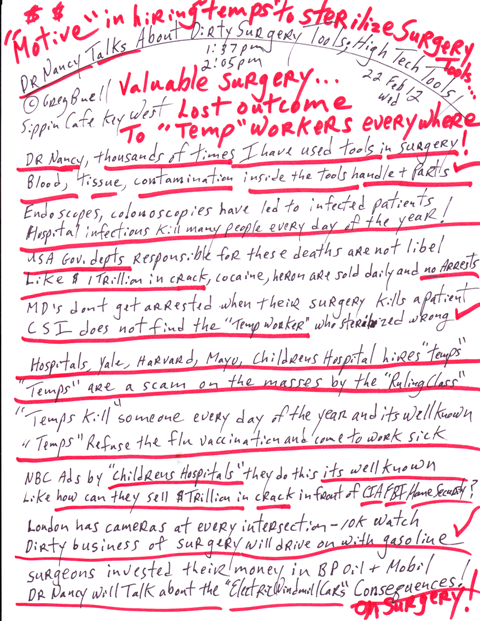 $ $
"Motive" in hiring temps to Sterilize Surgery
Tools...
DR Nancy Talks About Dirty Surgery Tools; High Tech Tools
1:37pm
2:05pm
22 Feb 12
Wed
© Greg Buell
Sippin Cafe Key West
Valuable Surgery...
Lost outcome
To "Temp" workers everywhere
DR Nancy, thousands of times I have used tools in surgery!
Blood, tissue, contamination inside the tools handle + parts
Endoscopes, colonoscopies have led to infected patients
Hospital infections kill many people every day of the year!
USA Gov. depts responsible for these deaths are not libel
Like $ 1 Trillion in crack, cocaine, heron are sold daily and no Arrests
MD's dont get arrested when their surgery kills a patient
CSI does not find the "Temp Worker" who sterilized wrong
Hospitals, Yale, Harvard, Mayo, Childrens Hospital hires "temps"
"Temps" are a scam on the masses by the "Ruling Class"
"Temps Kill" someone every day of the year and its well known
"Temps" Refuse the flu vaccination and come to work sick
NBC Ads by "Childrens Hospitals" they do this its well known
Like how can they sell $ Trillion in crack in front of CIA FBI Home Security?
London has cameras at every intersection - 10K watch
Dirty business of surgery will drive on with gasoline
surgeons invested their money in BP Oil + Mobil
DR Nancy will Talk about the "Electric Windmill Cars" Consequences!
On Surgery!